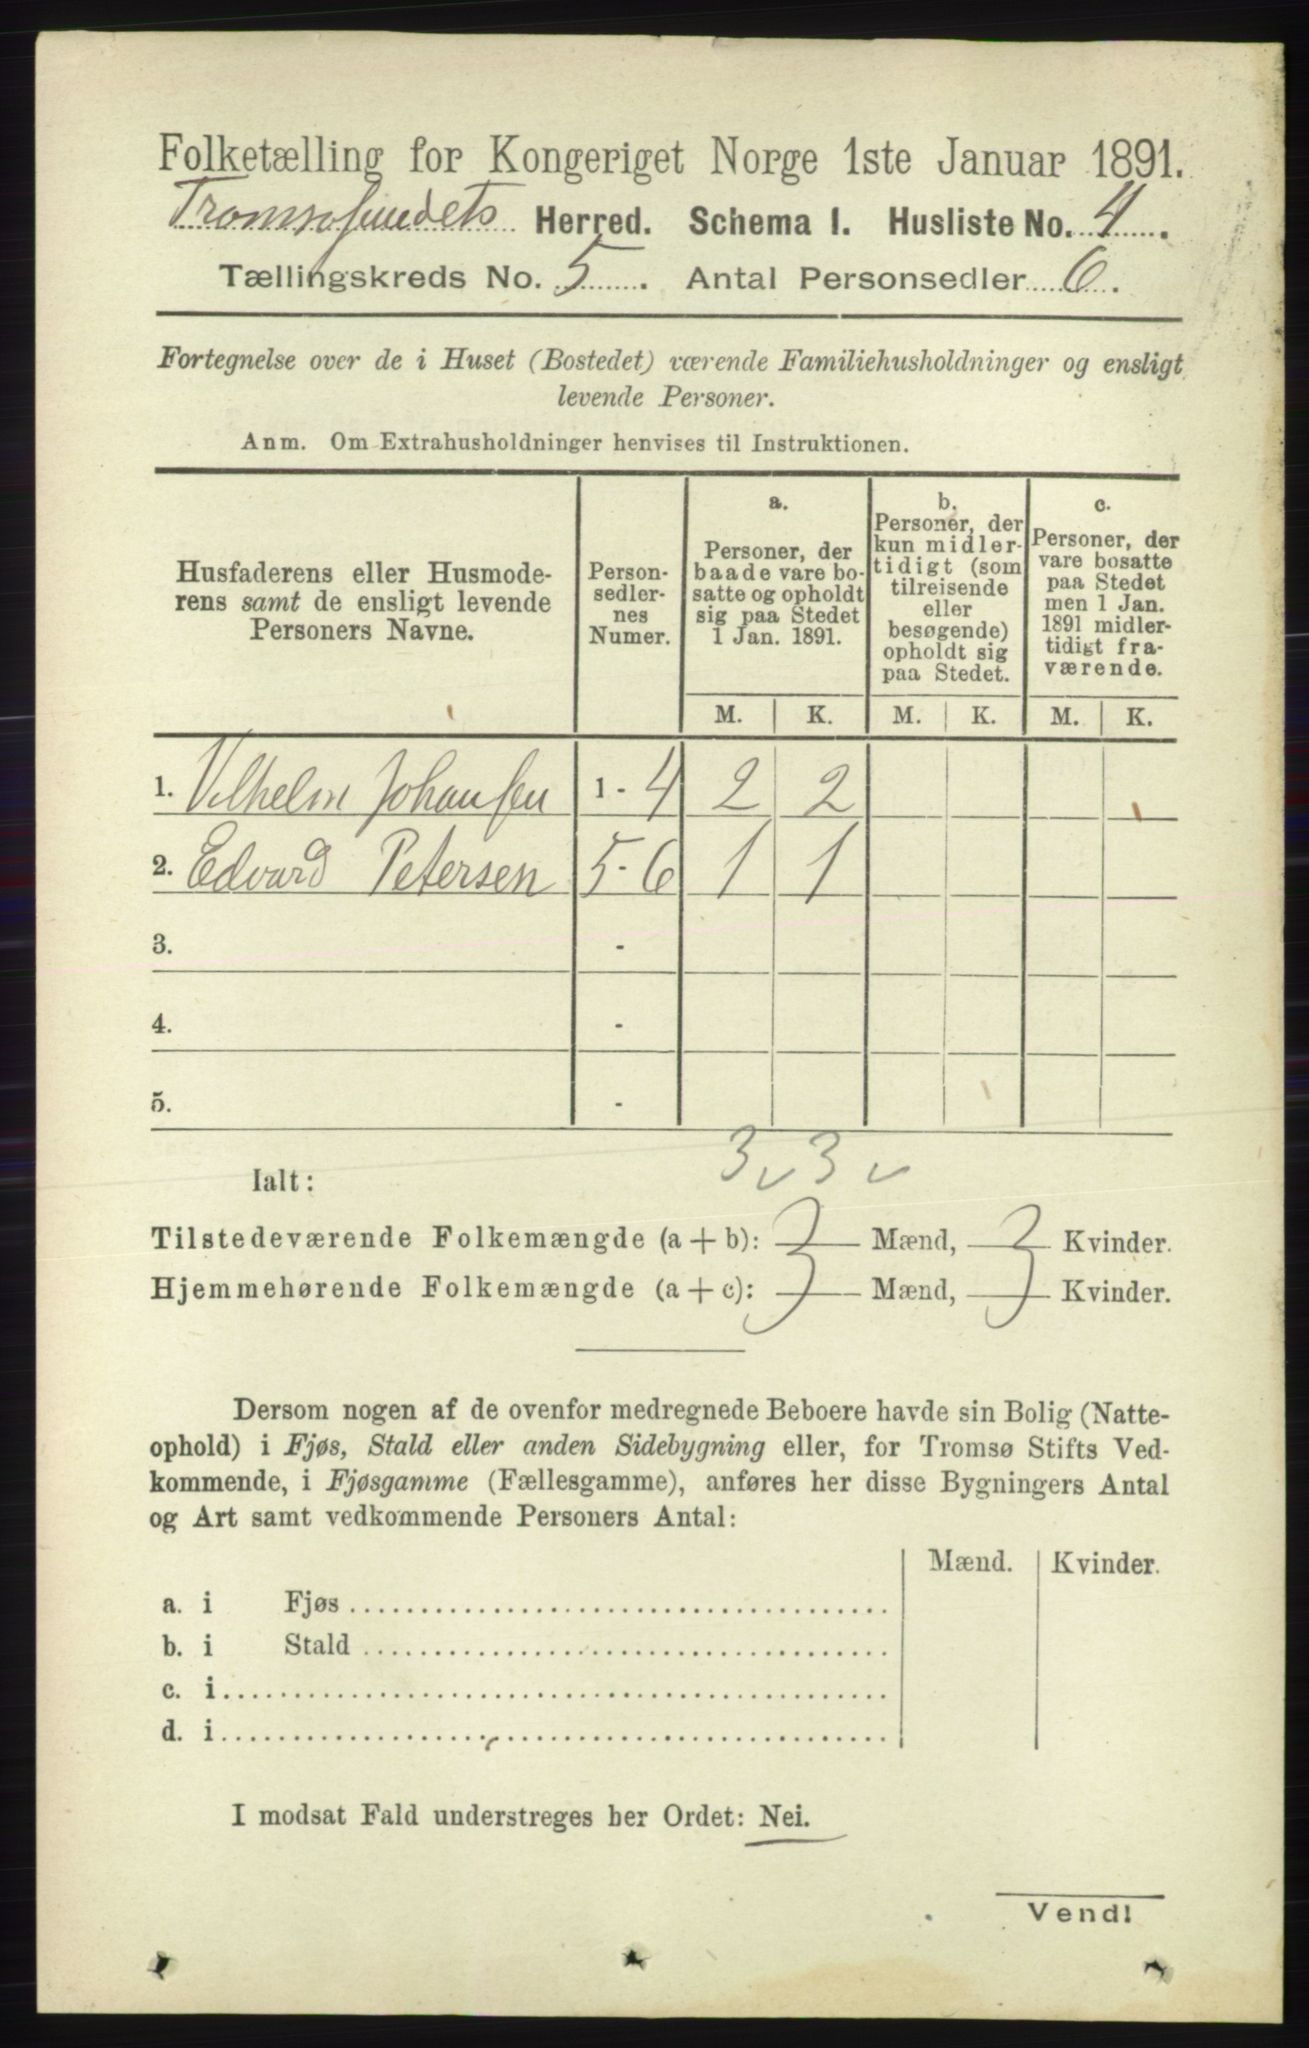 Folketælling for Kongeriget Norge 1ste Januar 1891.
Tromsøsundets Herred. Schema I. Husliste No. 4.
Tællingskreds No. 5. Antal Personsedler 6.
Fortegnelse over de i Huset (Bostedet) værende Familiehusholdninger og ensligt
levende Personer.
Anm. Om Extrahusholdninger henvises til Instruktionen.
Husfaderens eller Husmode-
rens samt de ensligt levende
Personers Navne.
Person-
sedler-
nes
Numer.
a.
Personer, der
baade vare bo-
satte og opholdt
sig paa Stedet
1 Jan. 1891.
b.
Personer, der
kun midler-
tidigt (som
tilreisende
eller
besøgende)
opholdt sig
paa Stedet.
c.
Personer, der
vare bosatte
paa Stedet
men 1 Jan.
1891 midler-
tidigt fra-
værende.
M. K. M. K. M. K.
1. Vilhelm Johansen 1 - 4 2 2
2. Edvard Petersen 5 - 6 1 1
3. -
4. -
5. -
3 v 3 v
Ialt:
Tilstedeværende Folkemængde (a + b): 3 Mænd, 3 Kvinder.
Hjemmehørende Folkemængde (a + c): 3 Mænd, 3 Kvinder.
Dersom nogen af de ovenfor medregnede Beboere havde sin Bolig (Natte-
ophold) i Fjøs, Stald eller anden Sidebygning eller, for Tromsø Stifts Ved-
kommende, i Fjøsgamme (Fællesgamme), anføres her disse Bygningers Antal
og Art samt vedkommende Personers Antal:
Mænd. Kvinder.
a. i Fjøs
b. i Stald
c. i
d. i
I modsat Fald understreges her Ordet: Nei.
Vend!